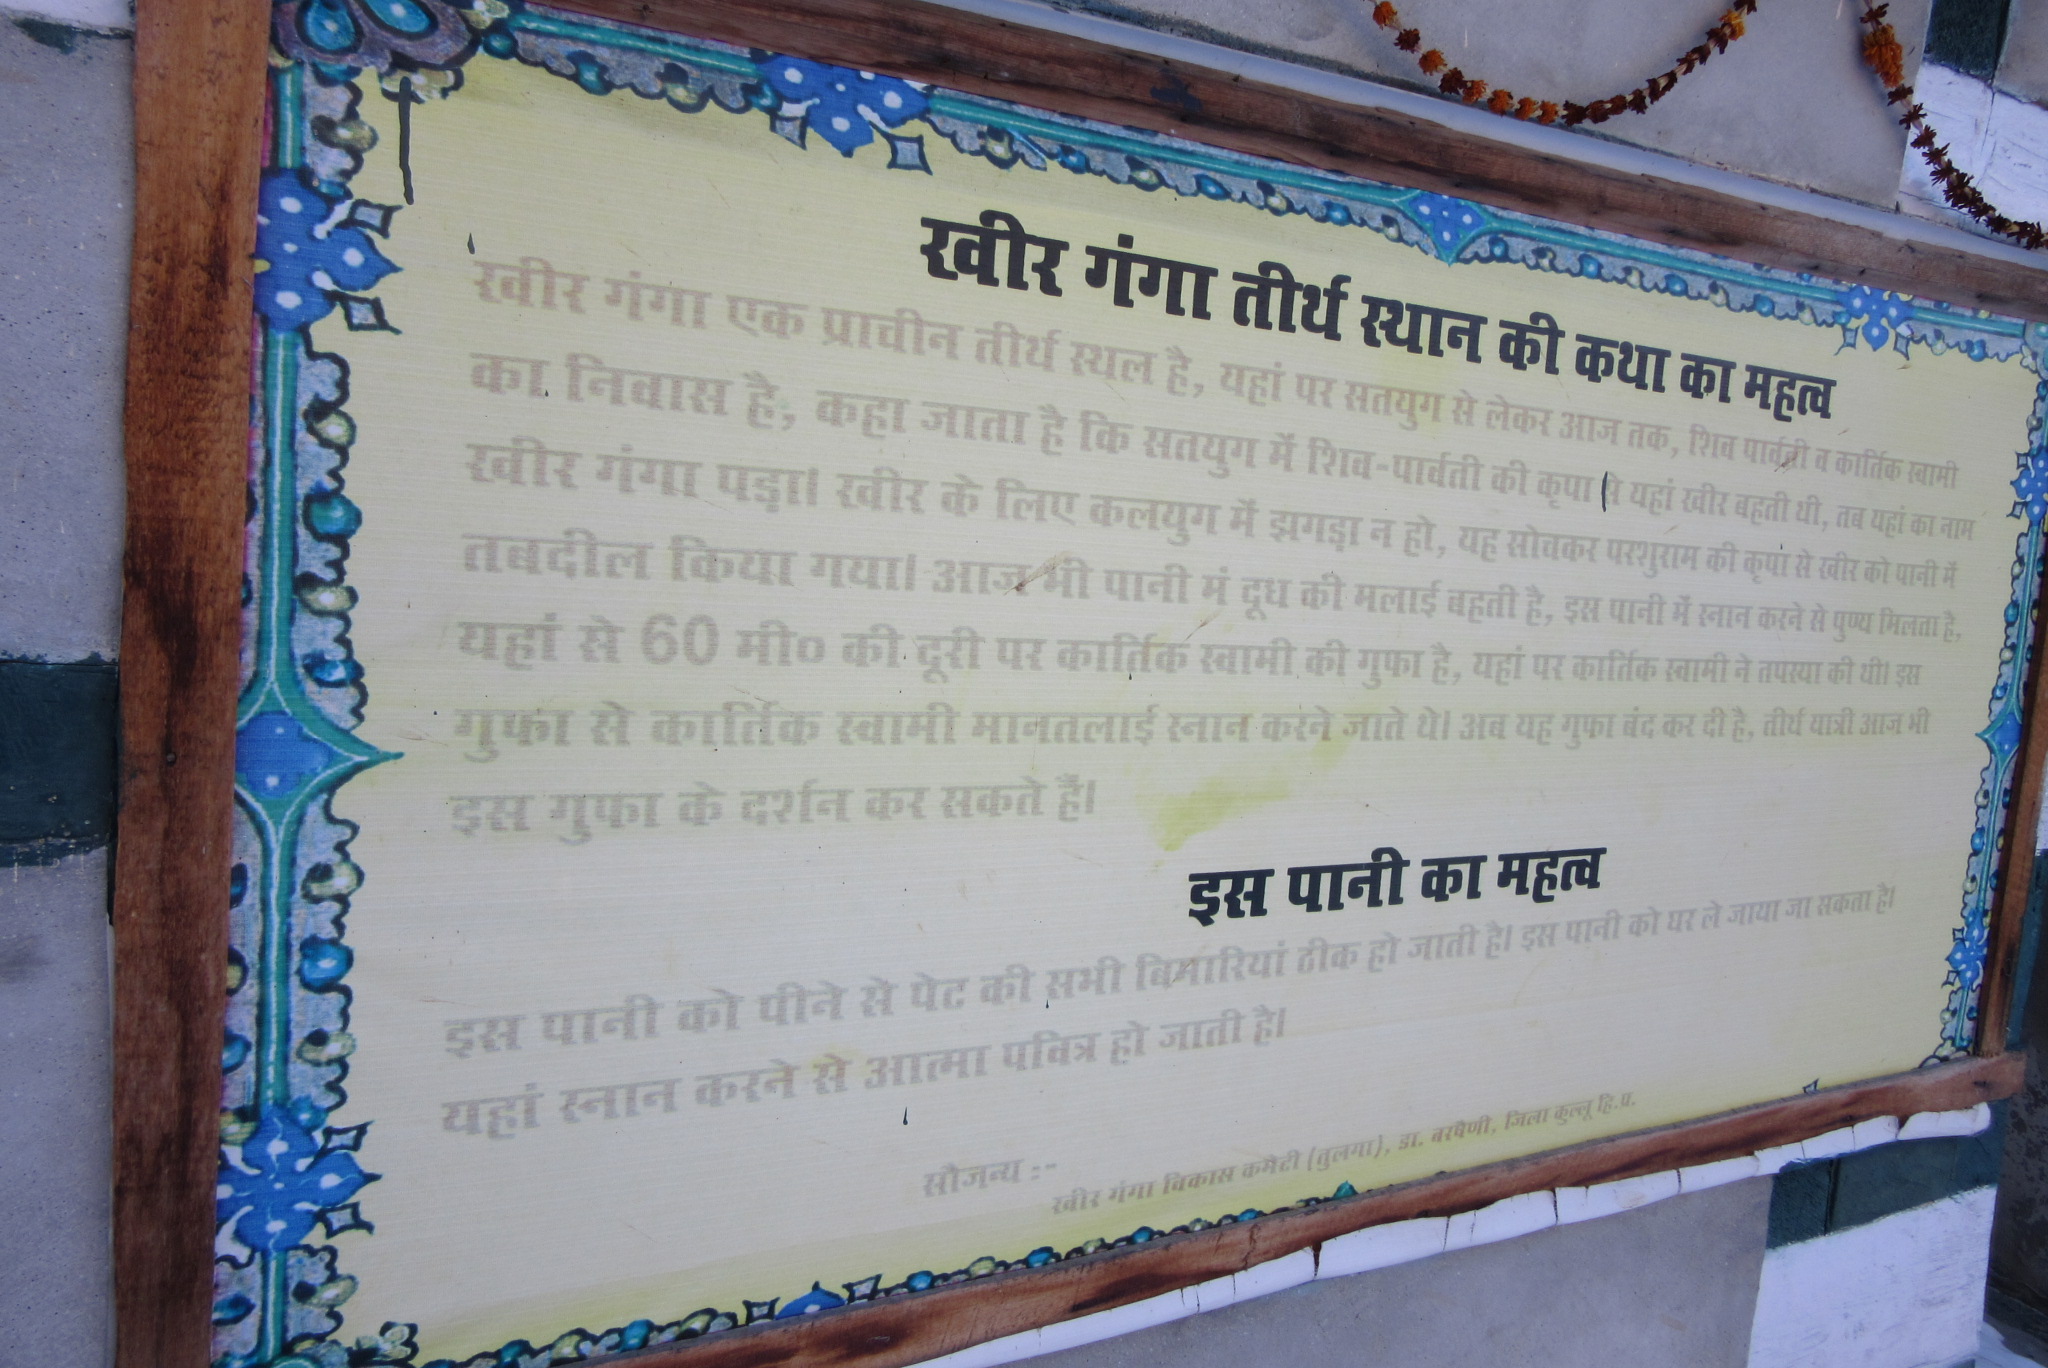 खीर गंगा तीर्थ स्थान की कथा का महत्व
खीर गंगा एक प्राचीन तीर्थ स्थल है, यहां पर सतयुग से लेकर आज तक, शिव पार्वती व कार्तिक स्वामी
का निवास है, कहा जाता है कि सतयुग में शिव-पार्वती की कृपा से यहां खीर बहती थी, तब यहां का नाम
खीर गंगा पड़ा। खीर के लिए कलयुग में झगड़ा न हो, यह सोचकर परशुराम की कृपा से खीर को पानी में
तबदील किया गया। आज भी पानी मं दूध की मलाई बहती है, इस पानी में स्नान करने से पुण्य मिलता है,
यहां से 60 मी० की दूरी पर कार्तिक स्वामी की गुफा है, यहां पर कार्तिक स्वामी ने तपस्या की थी। इस
गुफा से कार्तिक स्वामी मानतलाई स्नान करने जाते थे। अब यह गुफा बंद कर दी है, तीर्थ यात्री आज भी
इस गुफा के दर्शन कर सकते हैं।
इस पानी का महत्व
इस पानी को पीने से पेट की सभी बिमारियां ठीक हो जाती है। इस पानी को घर ले जाया जा सकता है।
यहां स्नान करने से आत्मा पवित्र हो जाती है।
सौजन्य :-
खीर गंगा विकास कमेटी (तुलगा), डा. बरषैणी, जिला कुल्लू हि.प.